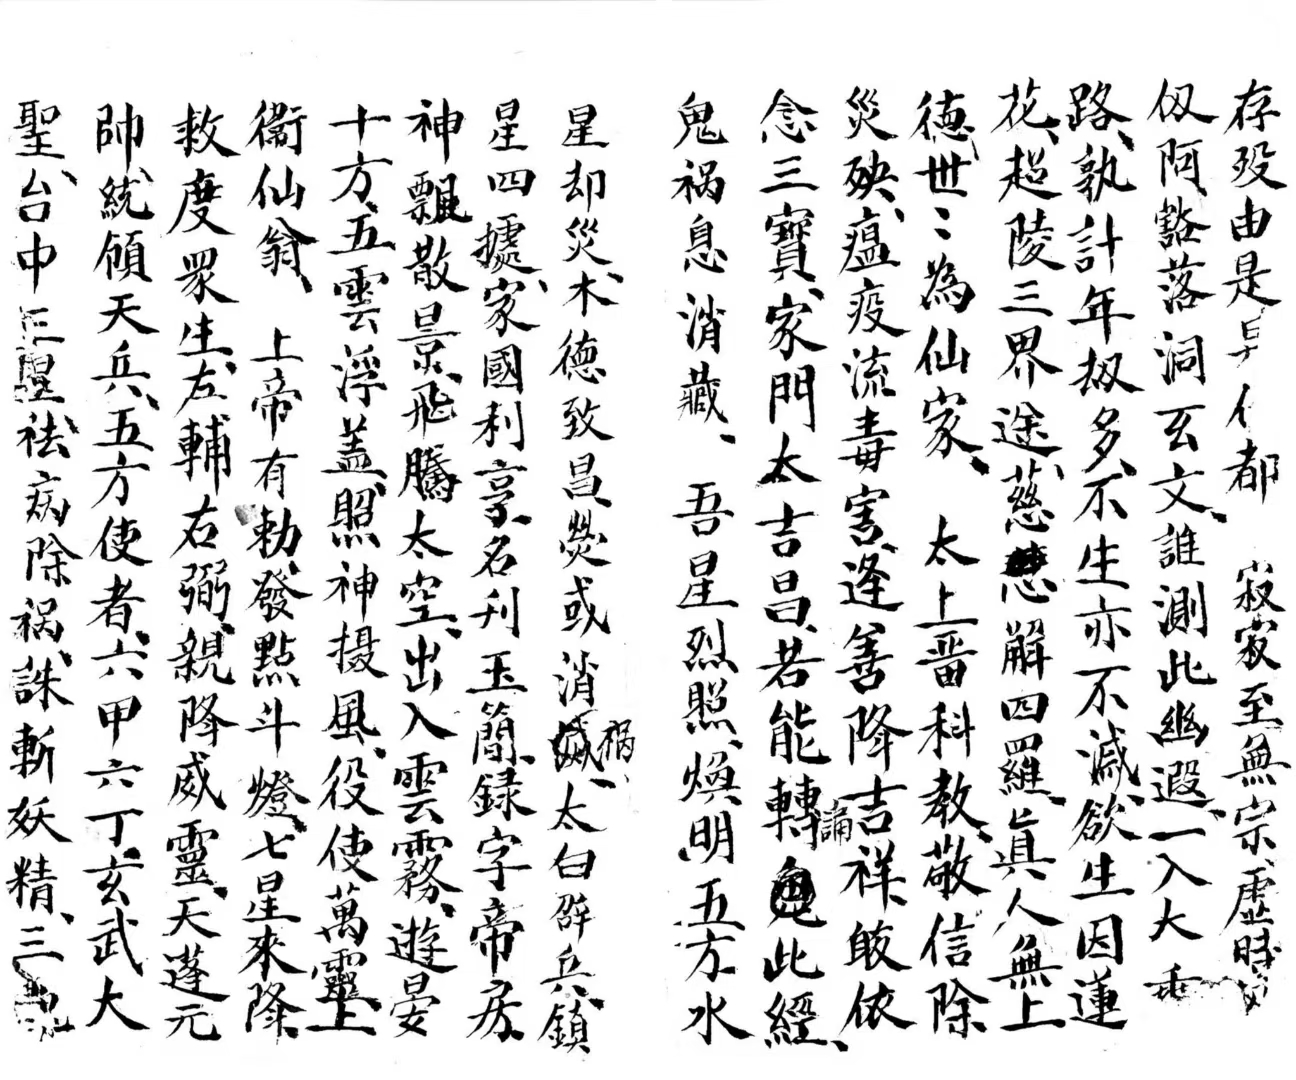 存殁由是 都　寂寂至無宗虛時
仭阿豁落洞玄文誰測此幽遐一入大乘
路孰計年刼多不生亦不滅欲生因蓮
花超陵三界途慈 解四羅真人無上
德世〻為仙家　太上晋科教敬信除
災殃瘟疫流毒害逢善降吉祥皈依
念三寶家門太吉昌若能轉誦此經
鬼祸息消藏　吾星烈照煥明五方水
星却災木德致昌熒或消祸太白辟兵鎮
星四據家國利享名刋玉簡録字帝房
神飄散景飛騰太空出入雲霧遊晏
十方五雲浮盖照神摄風役使萬靈上
衛仙翁　上帝有勅發點斗燈七星來降
救度眾生左輔右弼親降威靈天蓬元
帥統領天兵五方使者六甲六丁玄武大
聖台中三星祛病除祸誅斬妖精三